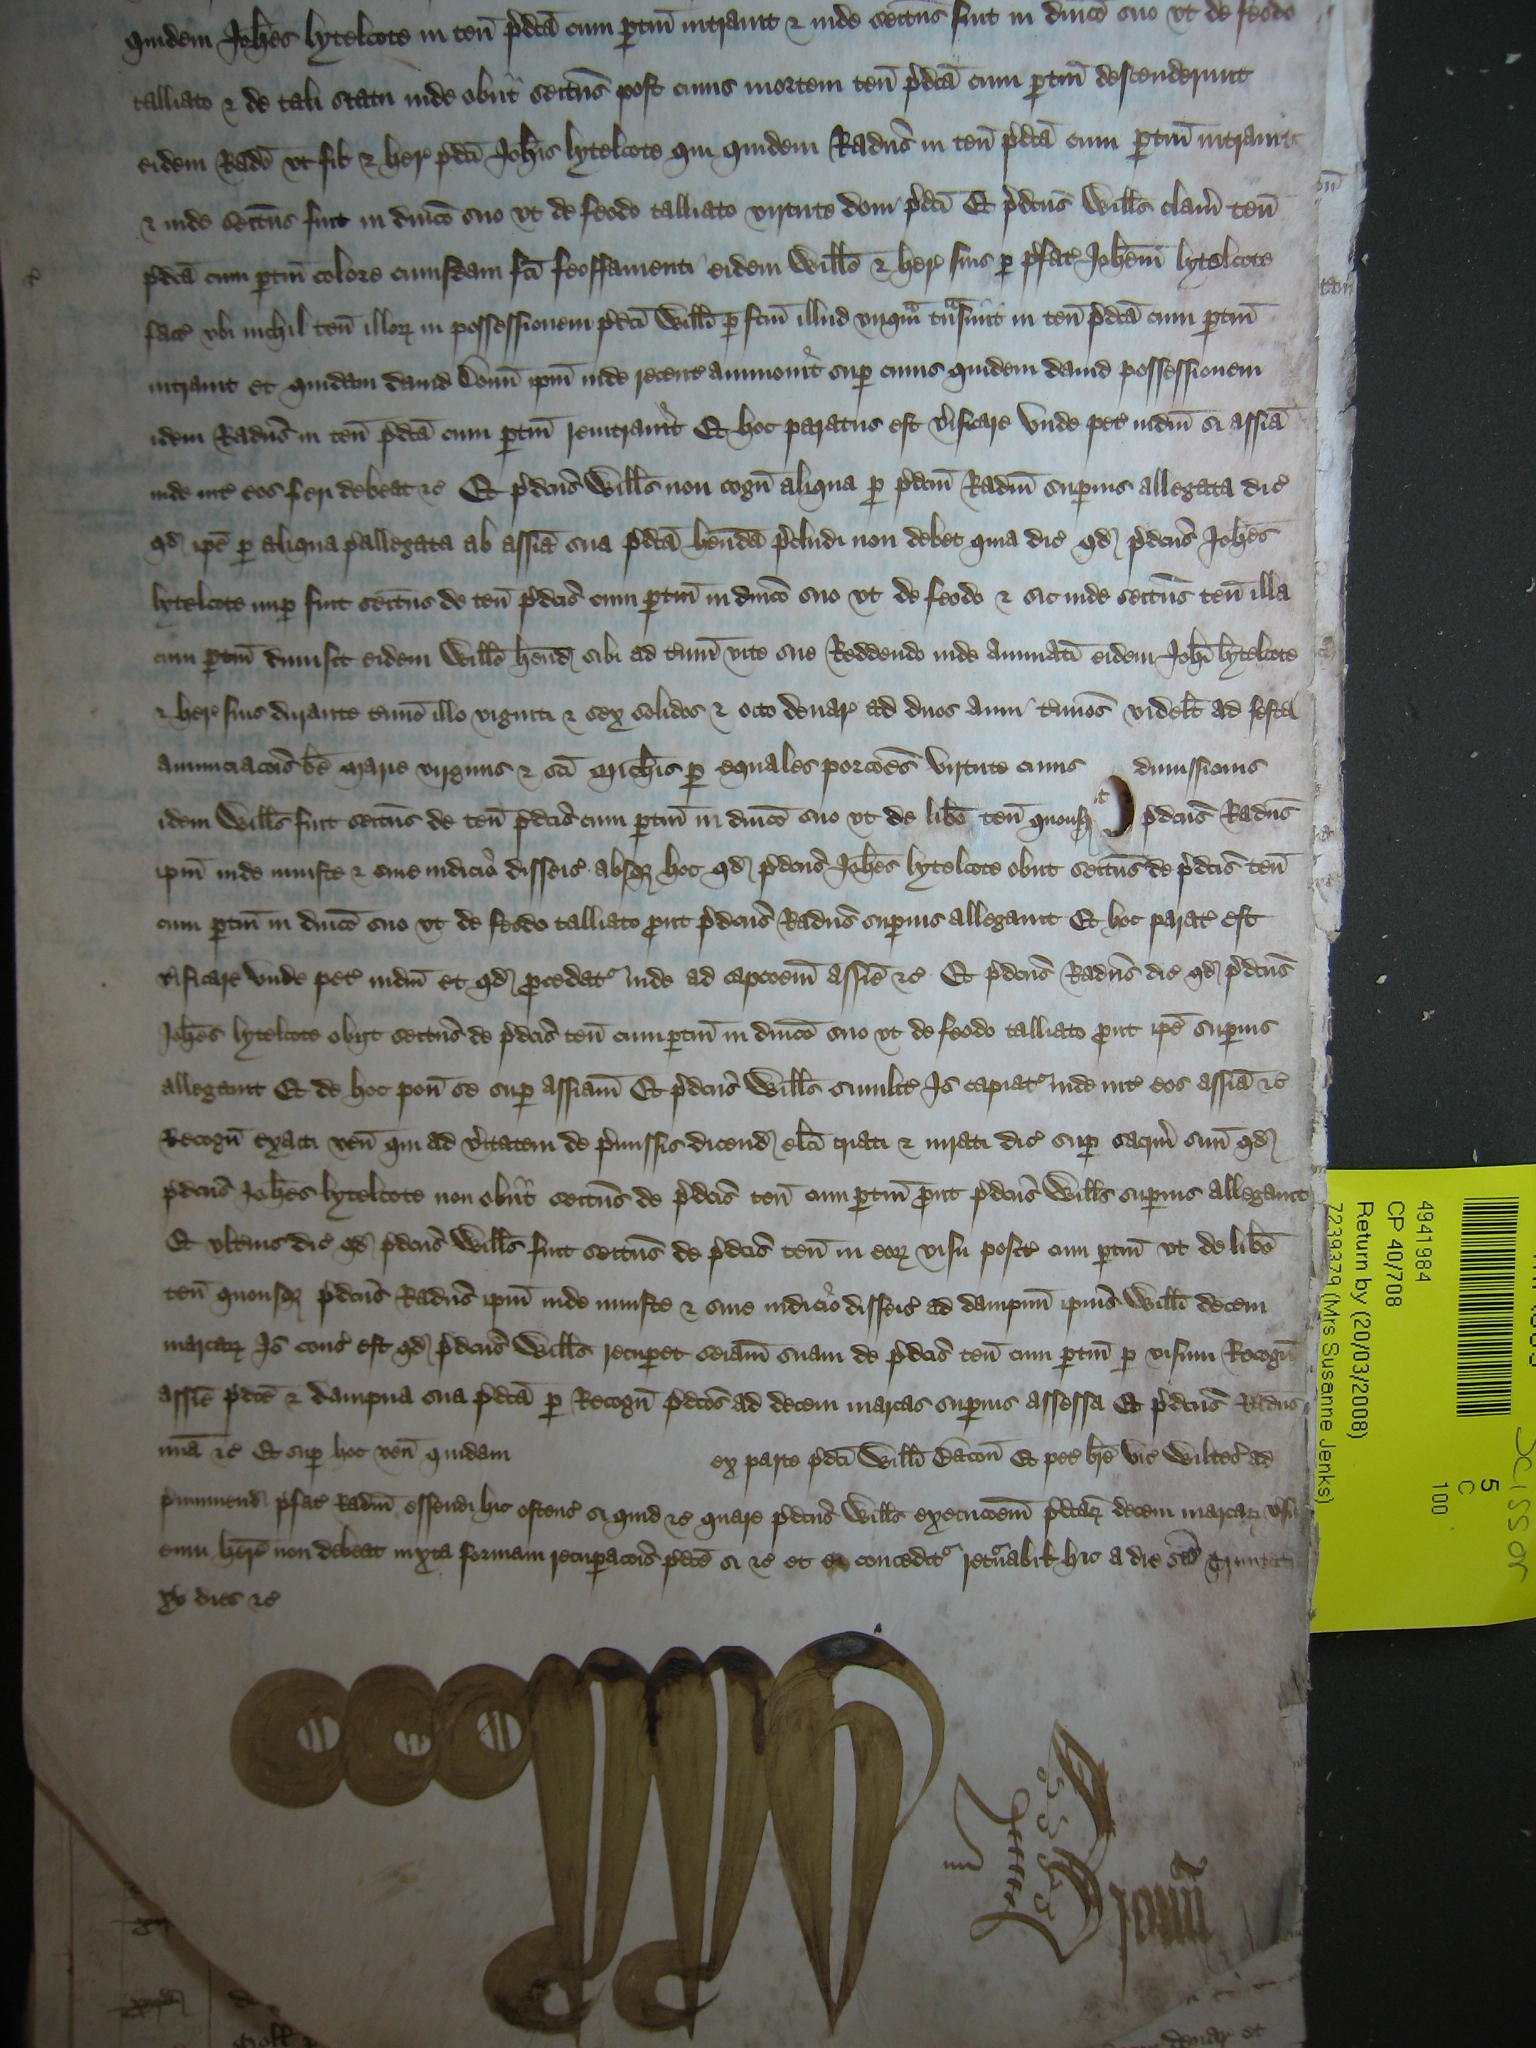 quidem Joħes lytelcote in teñ p̃dcã cum ptiñ intrauit & inde seitus fuit in dnico suo vt de feodo
talliato & de tali statu inde obijt seitus post cuius mortem teñ p̃dcã cum ptiñ descenderunt
eidem Radõ vt fił & her̃ p̃dci Joħis lytelcote qui quidem Radus in teñ p̃dcã cum ptiñ intrauit
& inde seitus fuit in dnico suo vt de feodo talliato virtute doni p̃dci Et p̃dcus Wiłłs clam̃ teñ
p̃dcã cum ptiñ colore cuiusdam fci feoffamenti eidem Wiłło & her̃ suis p p̃fat̃ Joħem lytelcote
fact̃ vbi nichil teñ illoꝝ in possessionem p̃dci Wiłłi p fcm illud vnqm̃ t̃nsiuit in teñ p̃dcã cum ptiñ
intrauit et quidam dauid Donñ ipm inde recent̃ ammouit sup cuius quidem dauid possessionem
idem Radus in teñ p̃dcã cum ptiñ reintrauit Et hoc paratus est ṽificare vnde pet̃ iudm̃ si assiã
inde int̃ eos fieri debeat &c̃ Et p̃dcus Wiłłs non cogñ aliqua p p̃dcm Radm supius allegata dic̃
qđ ipe p aliqua p̃allegata ab assiã sua p̃dcã hendã p̃cludi non debet quia dic̃ qđ p̃dcus Joħes
lytelcote nup fuit seitus de teñ p̃dcis cum ptiñ in dnico suo vt de feodo & sic inde seitus teñ illa
cum ptiñ dimisit eidem Wiłło hend sibi ad tmiñ vite sue Reddendo inde annuatĩ eidem Joħi lytelcote
& her̃ suis durante tmiõ illo viginti & sex solidos & octo denar̃ ad duos anni tmiõs videlt ad festa
annunciacõis bẽ Marie virginis & sci Micħis p equales porcões virtute cuius dimissionis
idem Wiłłs fuit seitus de teñ p̃dcis cum ptiñ in dnico suo vt de libõ teñ quousqꝫ p̃dcus Radus
ipm inde iniuste & sine iudicio disseis̃ absqꝫ hoc qđ p̃dcus Joħes lytelcote obijt seitus de p̃dcis teñ
cum ptiñ in dnico suo vt de feodo talliato put p̃dcus Radus supius allegauit Et hoc parat̃ est
ṽificare vnde pet̃ iudm̃ et qđ pcedat̃ inde ad capcõem assiẽ &c̃ Et p̃dcus Radus dic̃ qđ p̃dcus
Joħes lytelcote obijt seitus de p̃dcis teñ cum ptiñ in dnico suo vt de feodo talliato put ipe supius
allegauit Et de hoc poñ se sup assiam Et p̃dcus Wiłłs similit̃ Iõ capiat̃ inde int̃ eos assiã &c̃
Recogñ exacti veñ qui ad ṽitatem de p̃missis dicend elci triati & iurati dic̃ sup sacrm̃ suũ qđ
p̃dcus Joħes lytelcote non obijt seitus de p̃dcis teñ cum ptiñ put p̃dcus Wiłłs supius allegauit
Et vlterius dic̃ qđ p̃dcus Wiłłs fuit seitus de p̃dcis teñ in eoꝝ visu posit̃ cum ptiñ vt de libõ
teñ quousqꝫ p̃dcus Radus ipm inde iniuste & sine iudicio disseis̃ ad dampnũ ipius Wiłłi decem
marcaꝝ Iõ cons̃ est qđ p̃dcus Wiłłs recupet seiãm suam de p̃dcis teñ cum ptiñ p visum Recogñ
assiẽ p̃dce & dampna sua p̃dcã p Recogñ p̃dcos ad decem marcas supius assessa Et p̃dcus Radus
mĩa &c̃ Et sup hoc veñ quidam ex parte p̃dci Wiłłi Dacoñ Et pet̃ bre vic̃ Wiltes̃ ad
p̃muniend p̃fat̃ Radm essendi hic ostens̃ si quid &c̃ quare p̃dcus Wiłłs execucõem p̃dcaꝝ decem marcaꝝ ṽsus
eum here non debeat iuxta formam recupacõis p̃dce si &c̃ et ei concedit̃ ret̃nabile hic a die sce Trinitatis
xv dies &c̃
Broun
4941984
CP 40/708
Return by (20/03/2008)
7239379 (Mrs Susanne Jenks)
5
C
100
Scissor